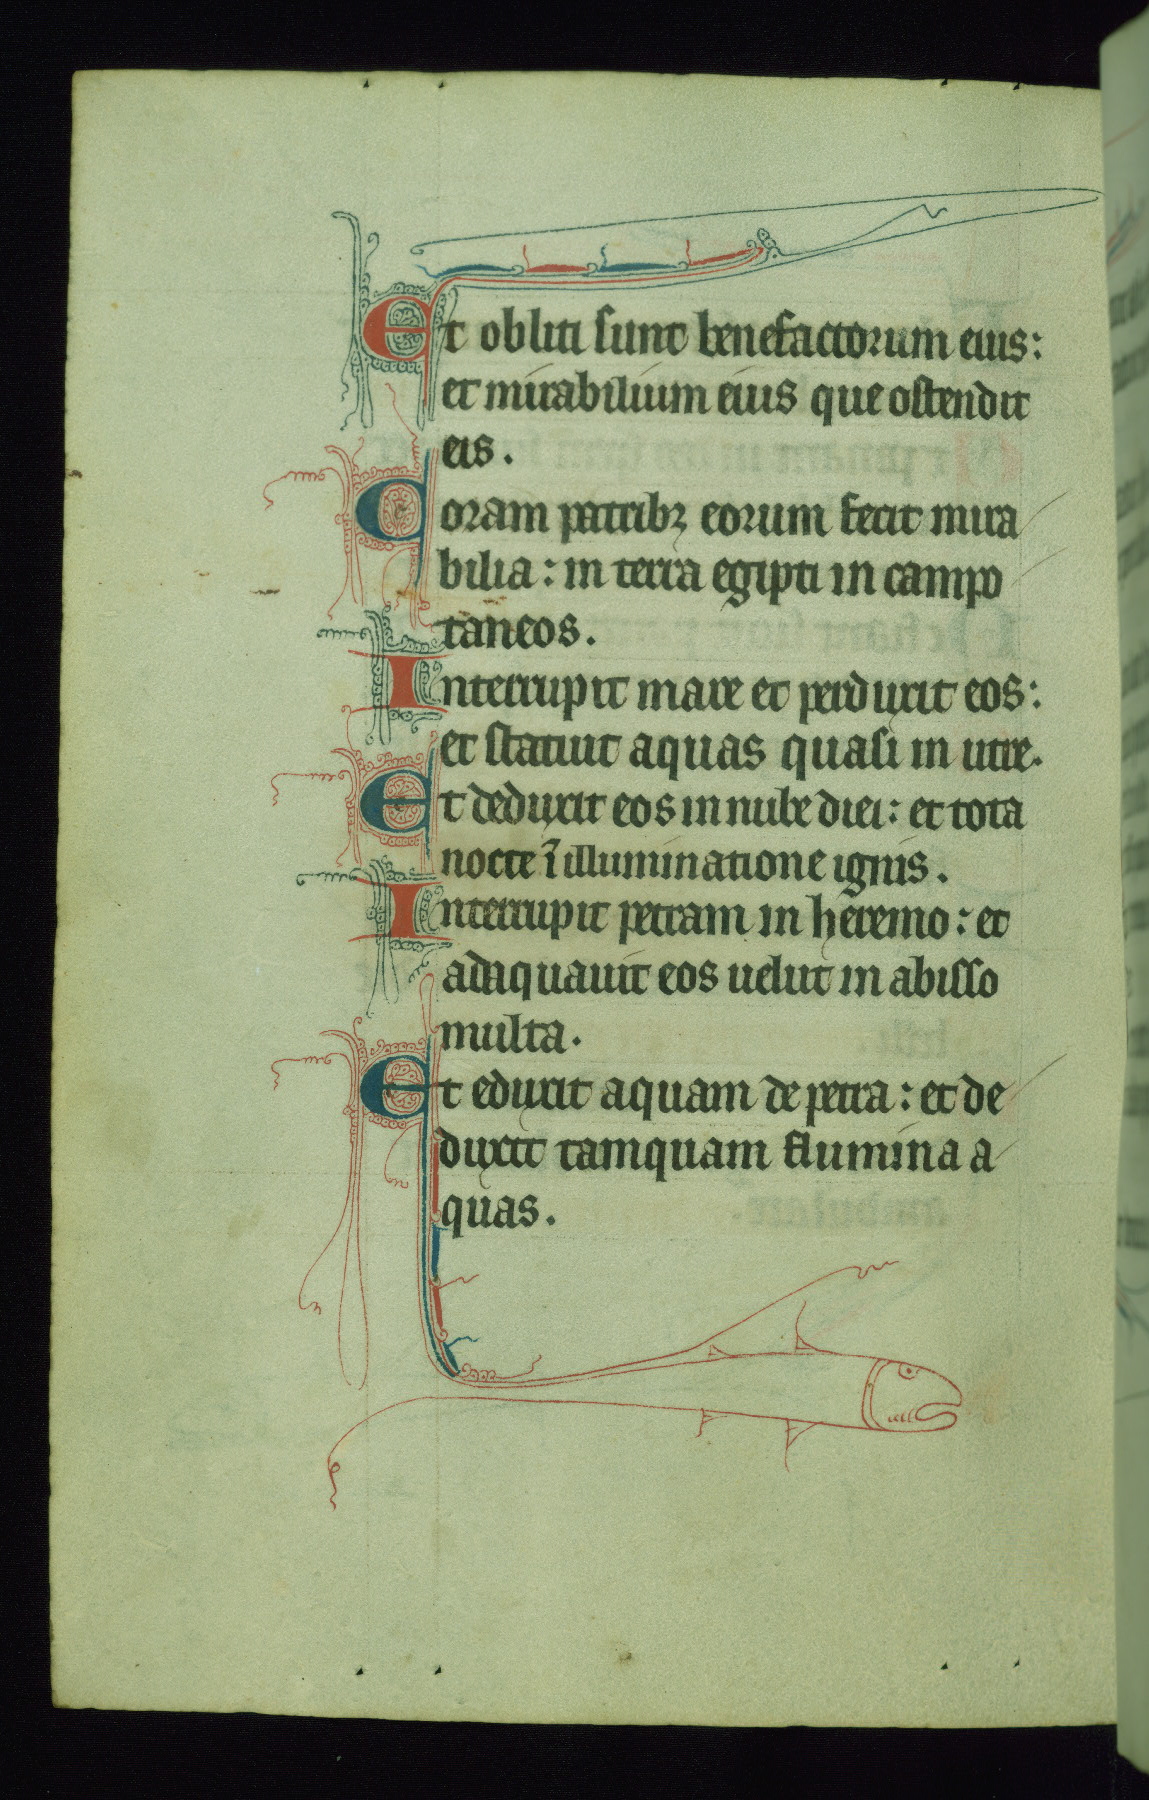 Et obliti sunt benefactorum eius:
et mirabilium eius que ostendit
eis.
Coram patribꝫ eorum fecit mira
bilia: in terra egipti in campo
taneos.
Interrupit mare et perduxit eos:
et statuit aquas quasi in utre.
Et deduxit eos in nube diei: et tota
nocte ī illuminatione ignis.
Interrupit petram in heremo: et
adaquauit eos uelut in abisso
multa.
Et eduxit aquam de petra: et de
duxit tamquam flumina a
quas.